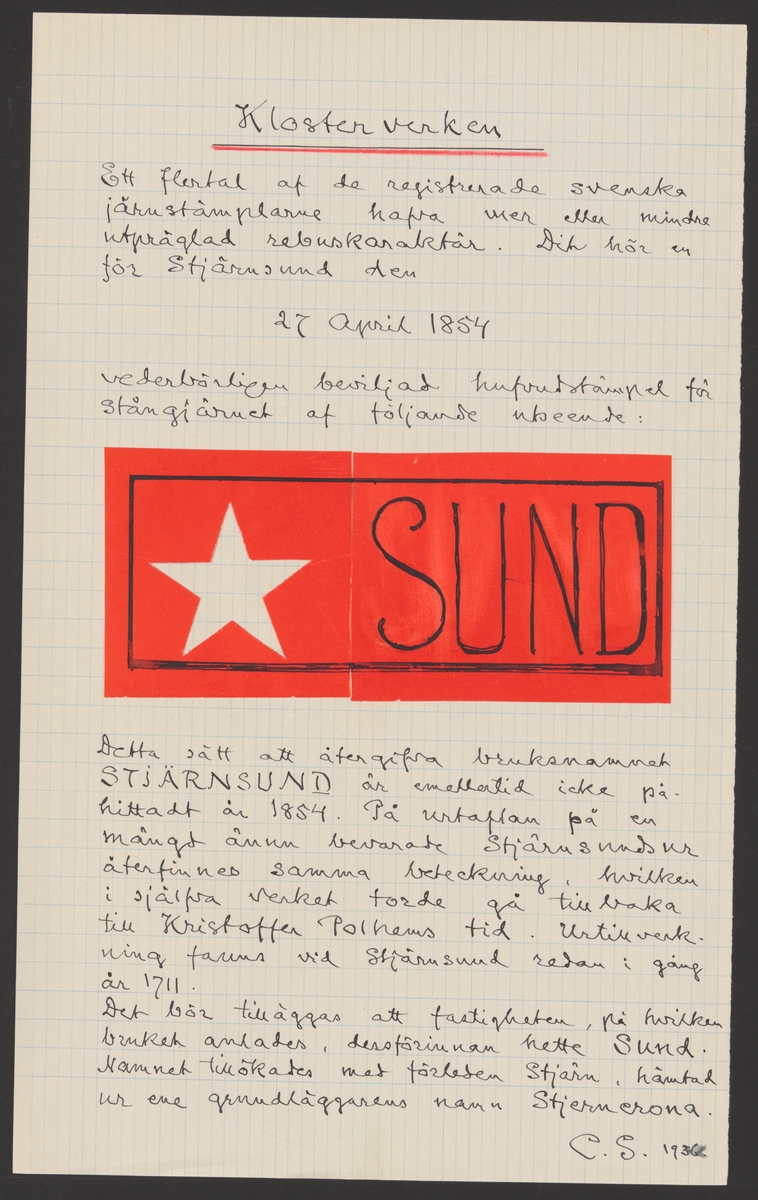 Klosterverken
Ett flertal af de registrerade svenska
järnstämplarne hafva mer eller mindre
utpräglad rebuskaraktär. Dit hör en
för Stjärnsund den
27 April 1854
vederbörligen beviljad hufvudstämpel för
stångjärnet af följande utseende:
SUND
Detta sätt att återgifva bruksnamnet
STJÄRNSUND är emellertid icke på-
hittadt år 1854. På urtaflan på en
mängd ännu bevarade Stjärnsundsur
återfinnes samma beteckning, hvilken
i själfva verket torde gå tillbaka
till Kristoffer Polhems tid. Urtillverk-
ning fanns vid Stjärnsund redan i gång
år 1711.
Det bör tilläggas att fastigheten, på hvilken
bruket anlades, dessförinnan hette Sund.
Namnet tillökades med förleden Stjärn, hämtad
ur ene grundläggarens namn Stjernerona.
C. S.